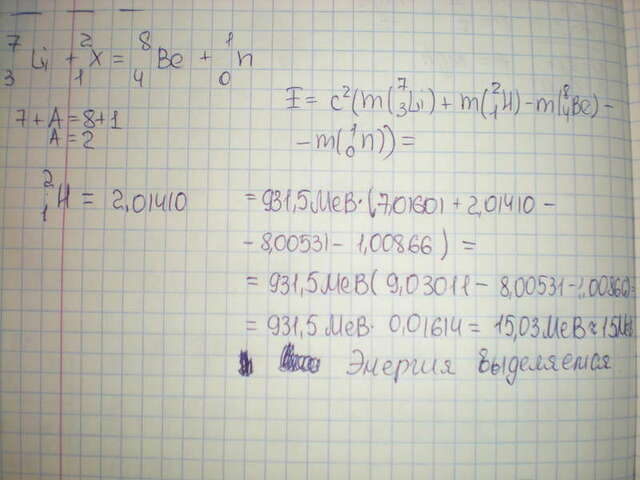 ⁷₃Li + ²₁X = ⁸₄Be + ¹₀n
7 + A = 8 + 1
A = 2
²₁H = 2,01410
E = c²(m(⁷₃Li) + m(²₁H) - m(⁸₄Be) -
- m(¹₀n)) =
= 931,5 МеВ · (7,01601 + 2,01410 -
- 8,00531 - 1,00866) =
= 931,5 МеВ (9,03011 - 8,00531 - 1,00866)=
= 931,5 МеВ · 0,01614 = 15,03 МеВ ≈ 15 МэВ
Энергия выделяется